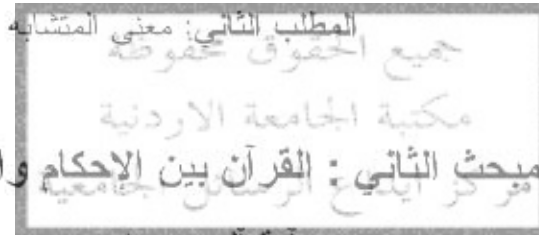 المطلب الثاني: معنى المتشابه
جميع الحقوق محفوظة
مكتبة الجامعة الاردنية
مبحث الثاني : القرآن بين الإحكام
مركز ايداع الرسائل الجامعية